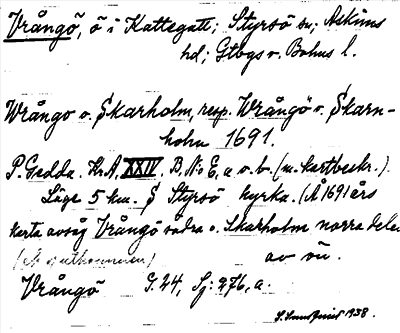 Vrångö, ö i Kattegatt; Styrsö sn; Askims
hd; Gtbgs o. Bohus l.
Wrångo o. Skarholm, resp. Wrångö o. Skarn-
holm 1691.
P. Gedda. Kr.A. XXIV. B. No E, a o. b. (m. kartbeskr.).
Läge 5 km. S Styrsö kyrka. (Å 1691 års
karta avsåg Vrångö södra o. Skarholm norra delen
av ön.
Vrångö G. 24, Sj: 276, a.
1938.